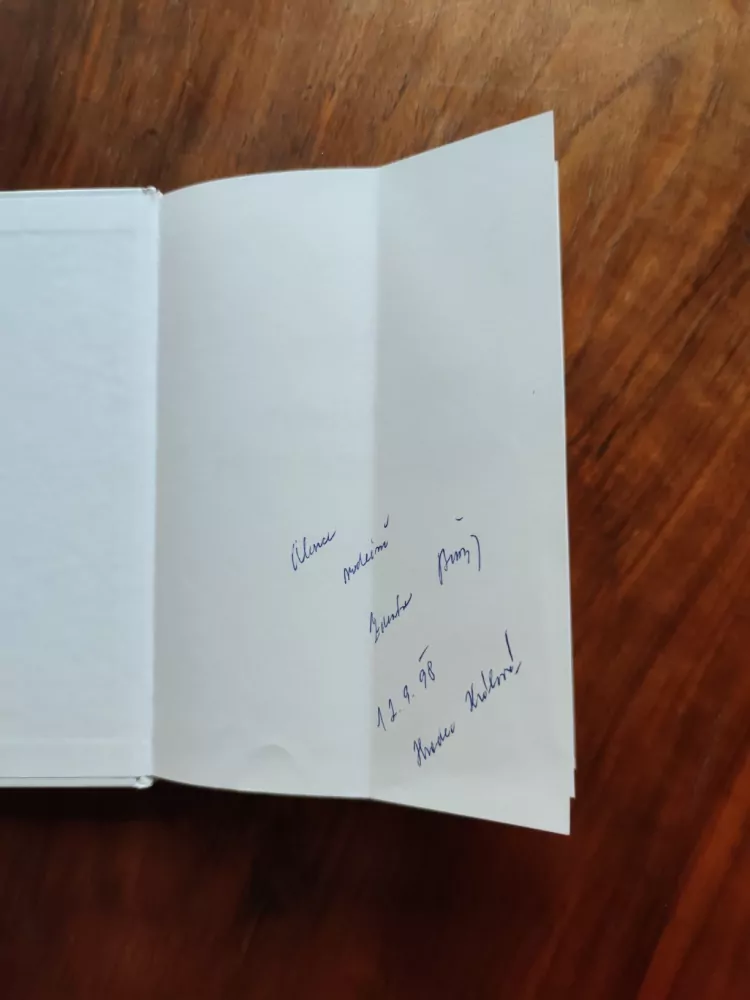 Alence
srdečně
Zdenka
12. 9. 98
Hradec Králové